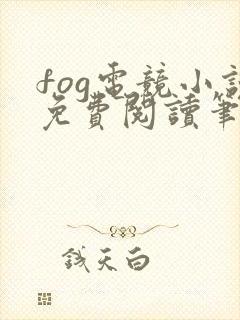 fog電競小說
免費閱讀筆
錢天白